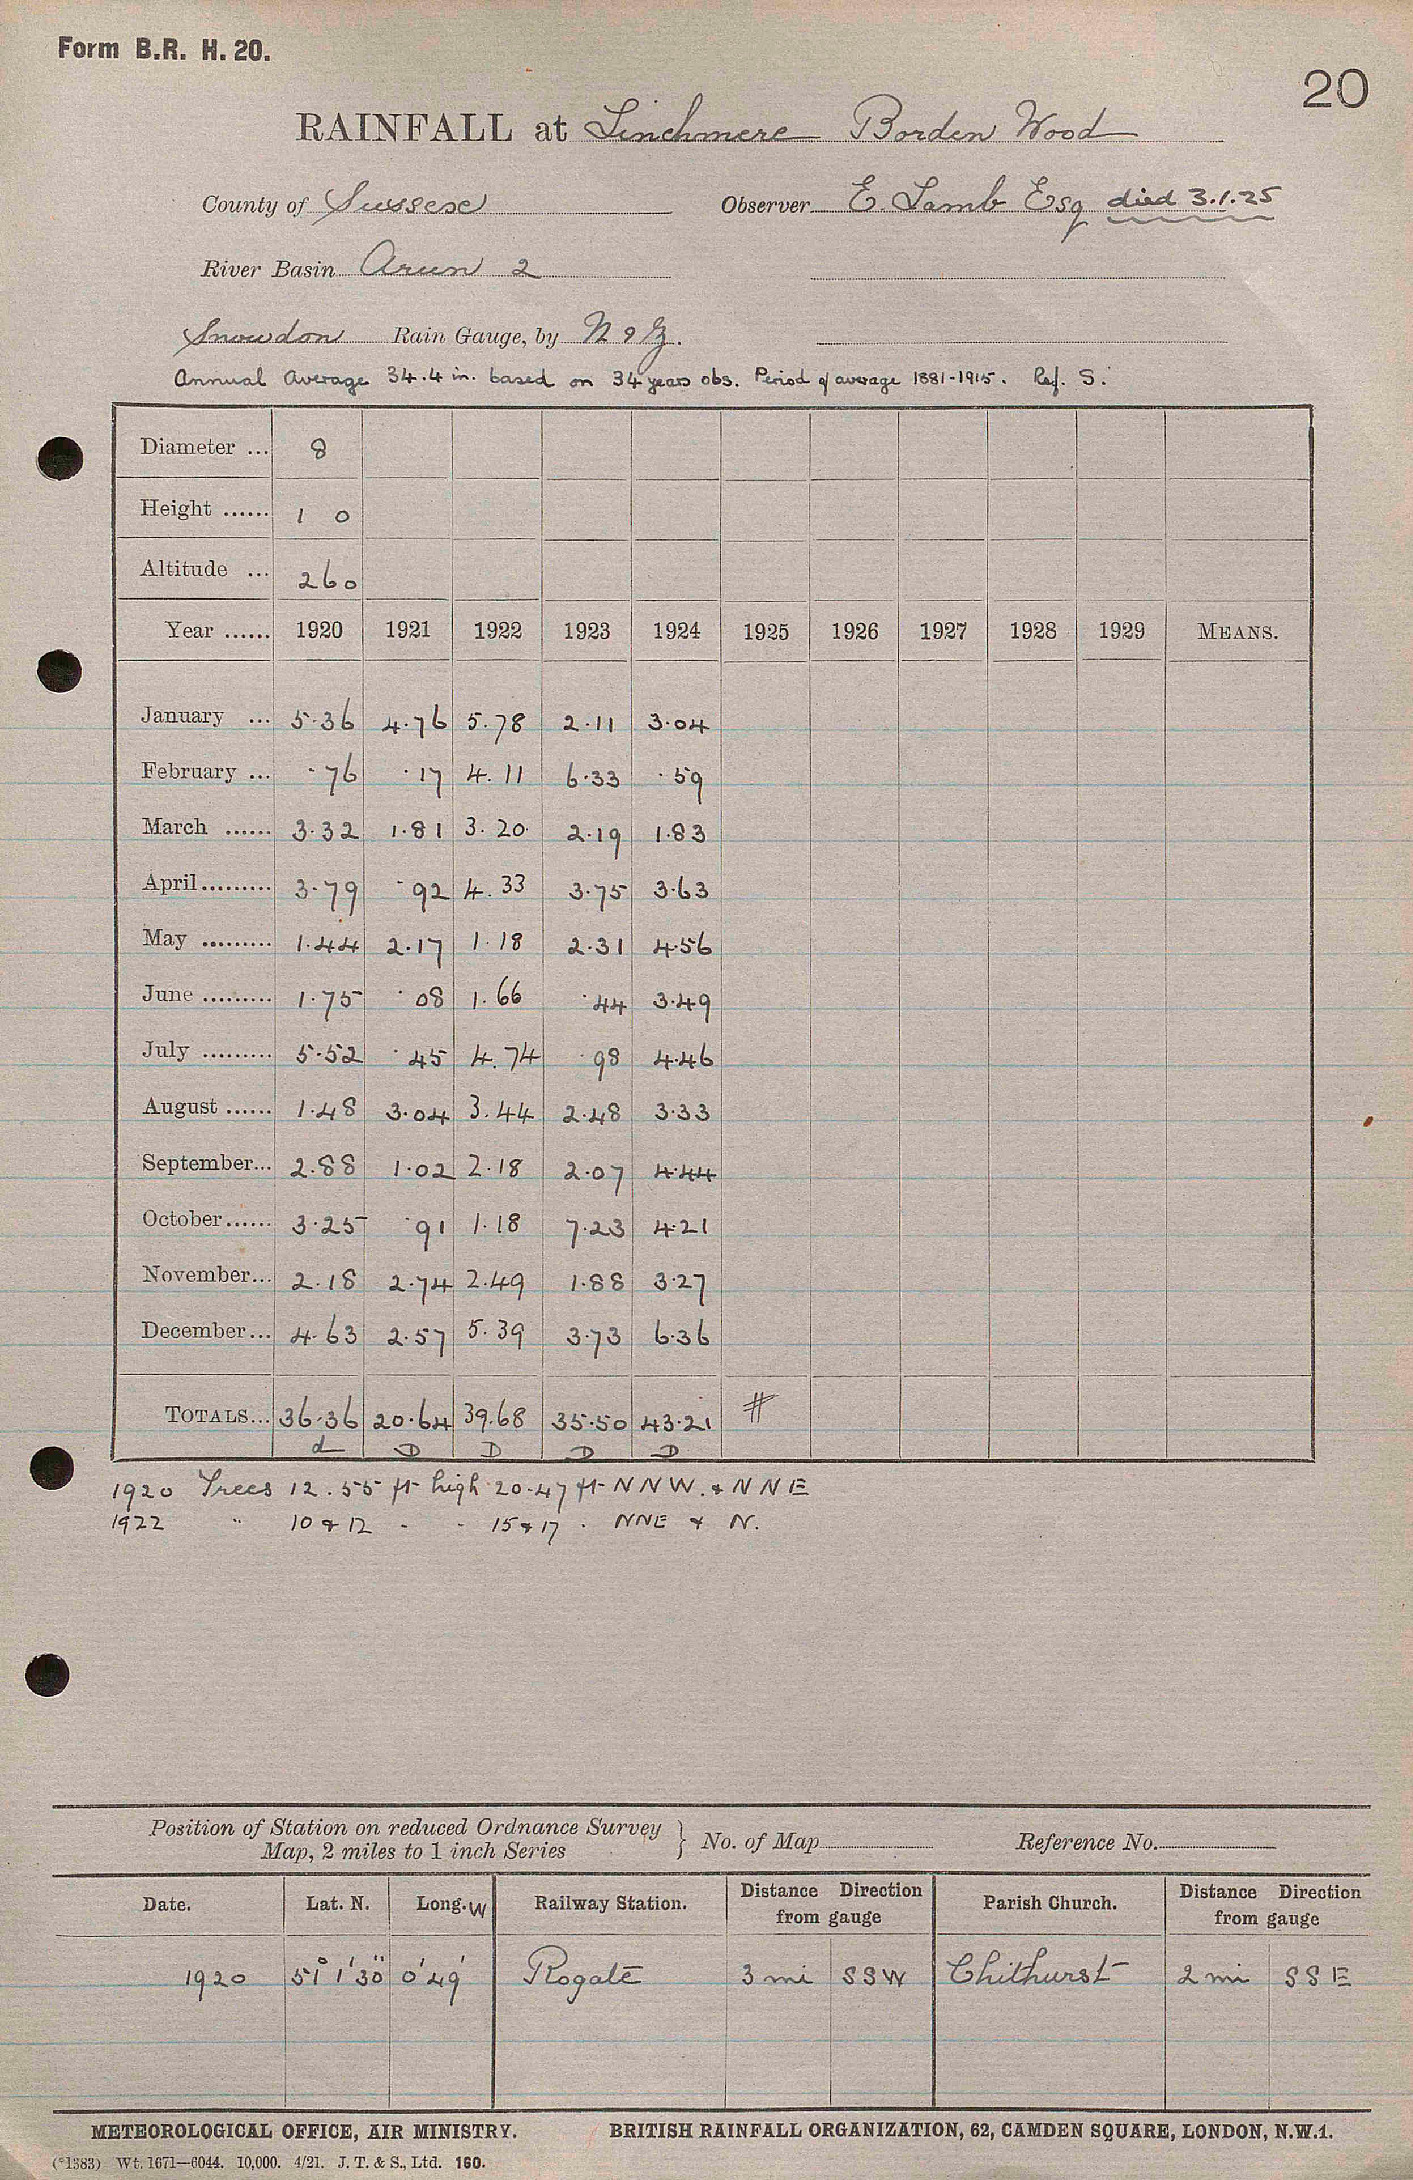 Form B.R. H. 20.
20
RAINFALL at Linchmere Borden Wood
County of Sussex Observer E. Lamb Esq died 3.1.25
River Basin Arun 2
Snowdon Rain Gauge, by N & Z.
Annual Average 34.4 in. based on 34 years obs. Period of average 1881-1915. Ref. S.
Diameter ... 8
Height ...... 1 0
Altitude ... 260
Year ...... 1920 1921 1922 1923 1924 1925 1926 1927 1928 1929 MEANS.
January ... 5.36 4.76 5.78 2.11 3.04
February ... .76 .17 4.11 6.33 .59
March ...... 3.32 1.81 3.20 2.19 1.83
April......... 3.79 .92 4.33 3.75 3.63
May ......... 1.44 2.17 1.18 2.31 4.56
June ......... 1.75 .08 1.66 .44 3.49
July ......... 5.52 .45 4.74 .98 4.46
August ...... 1.48 3.04 3.44 2.48 3.33
September... 2.88 1.02 2.18 2.07 4.44
October...... 3.25 .91 1.18 7.23 4.21
November... 2.18 2.74 2.49 1.88 3.27
December... 4.63 2.57 5.39 3.73 6.36
TOTALS... 36.36 20.64 39.68 35.50 43.21 #
d D D D D
1920 Trees 12.55 ft high 20.47 ft NNW. & NNE
1922 " 10 & 12 - - 15 & 17 . NNE & N.
Position of Station on reduced Ordnance Survey } No. of Map Reference No.
Map, 2 miles to 1 inch Series
Date. Lat. N. Long. W Railway Station. Distance Direction from gauge Parish Church. Distance Direction from gauge
1920 51° 1' 30" 0° 49' Rogate 3 mi SSW Chithurst 2 mi SSE
METEOROLOGICAL OFFICE, AIR MINISTRY. BRITISH RAINFALL ORGANIZATION, 62, CAMDEN SQUARE, LONDON, N.W.1.
(*1383) Wt. 1671—6044. 10,000. 4/21. J. T. & S., Ltd. 160.